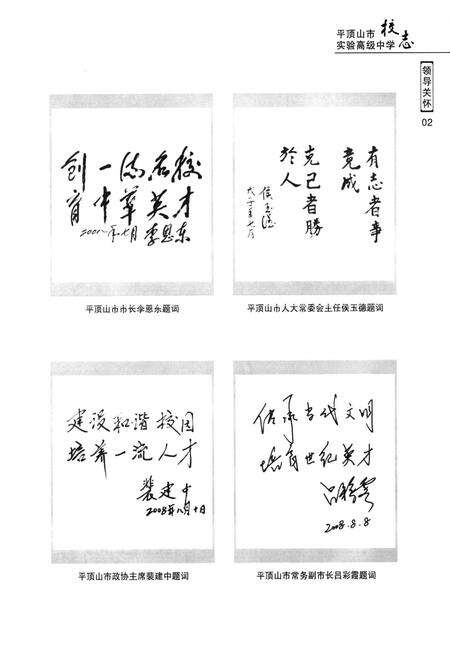 平顶山市
实验高级中学
校志
【领导关怀】
02
创一流名校
育中华英才
李恩东
平顶山市市长李恩东题词
有志者事
竟成
克己者勝
於人
侯玉德
平顶山市人大常委会主任侯玉德题词
建设和谐校园
培养一流人才
裴建中
2008年八月十日
平顶山市政协主席裴建中题词
传承当代文明
培育世纪英才
吕彩霞
2008.8.8
平顶山市常务副市长吕彩霞题词